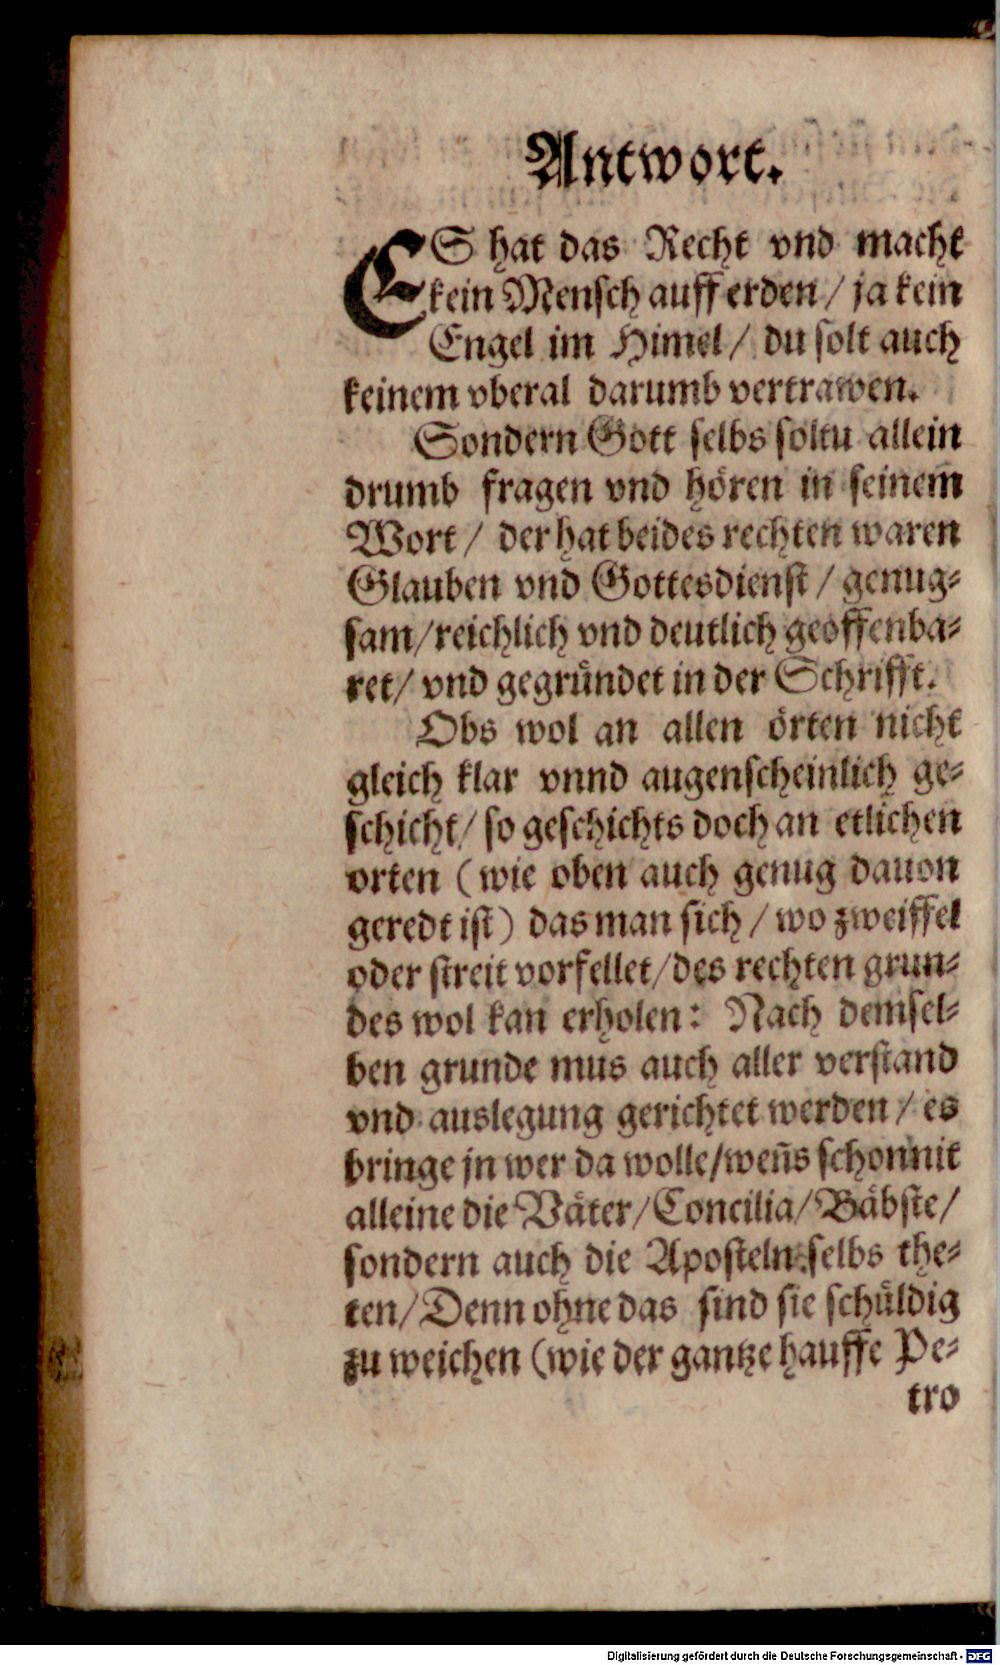 Antwort.
ES hat das Recht vnd macht
kein Mensch auff erden / ja kein
Engel im Himel / du solt auch
keinem vberal darumb vertrawen.
Sondern Gott selbs soltu allein
drumb fragen vnd hören in seinem
Wort / der hat beides rechten waren
Glauben vnd Gottesdienst / genug=
sam / reichlich vnd deutlich geoffenba=
ret / vnd gegründet in der Schrifft.
Obs wol an allen örten nicht
gleich klar vnnd augenscheinlich ge=
schicht / so geschichts doch an etlichen
orten ( wie oben auch genug dauon
geredt ist ) das man sich / wo zweiffel
oder streit vorfellet / des rechten grun=
des wol kan erholen : Nach demsel=
ben grunde mus auch aller verstand
vnd auslegung gerichtet werden / es
bringe jn wer da wolle / weñs schon nit
alleine die Väter / Concilia / Bäbste /
sondern auch die Aposteln selbs the=
ten / Denn ohne das sind sie schüldig
zu weichen (wie der gantze hauffe Pe=
tro
Digitalisierung gefördert durch die Deutsche Forschungsgemeinschaft - DFG